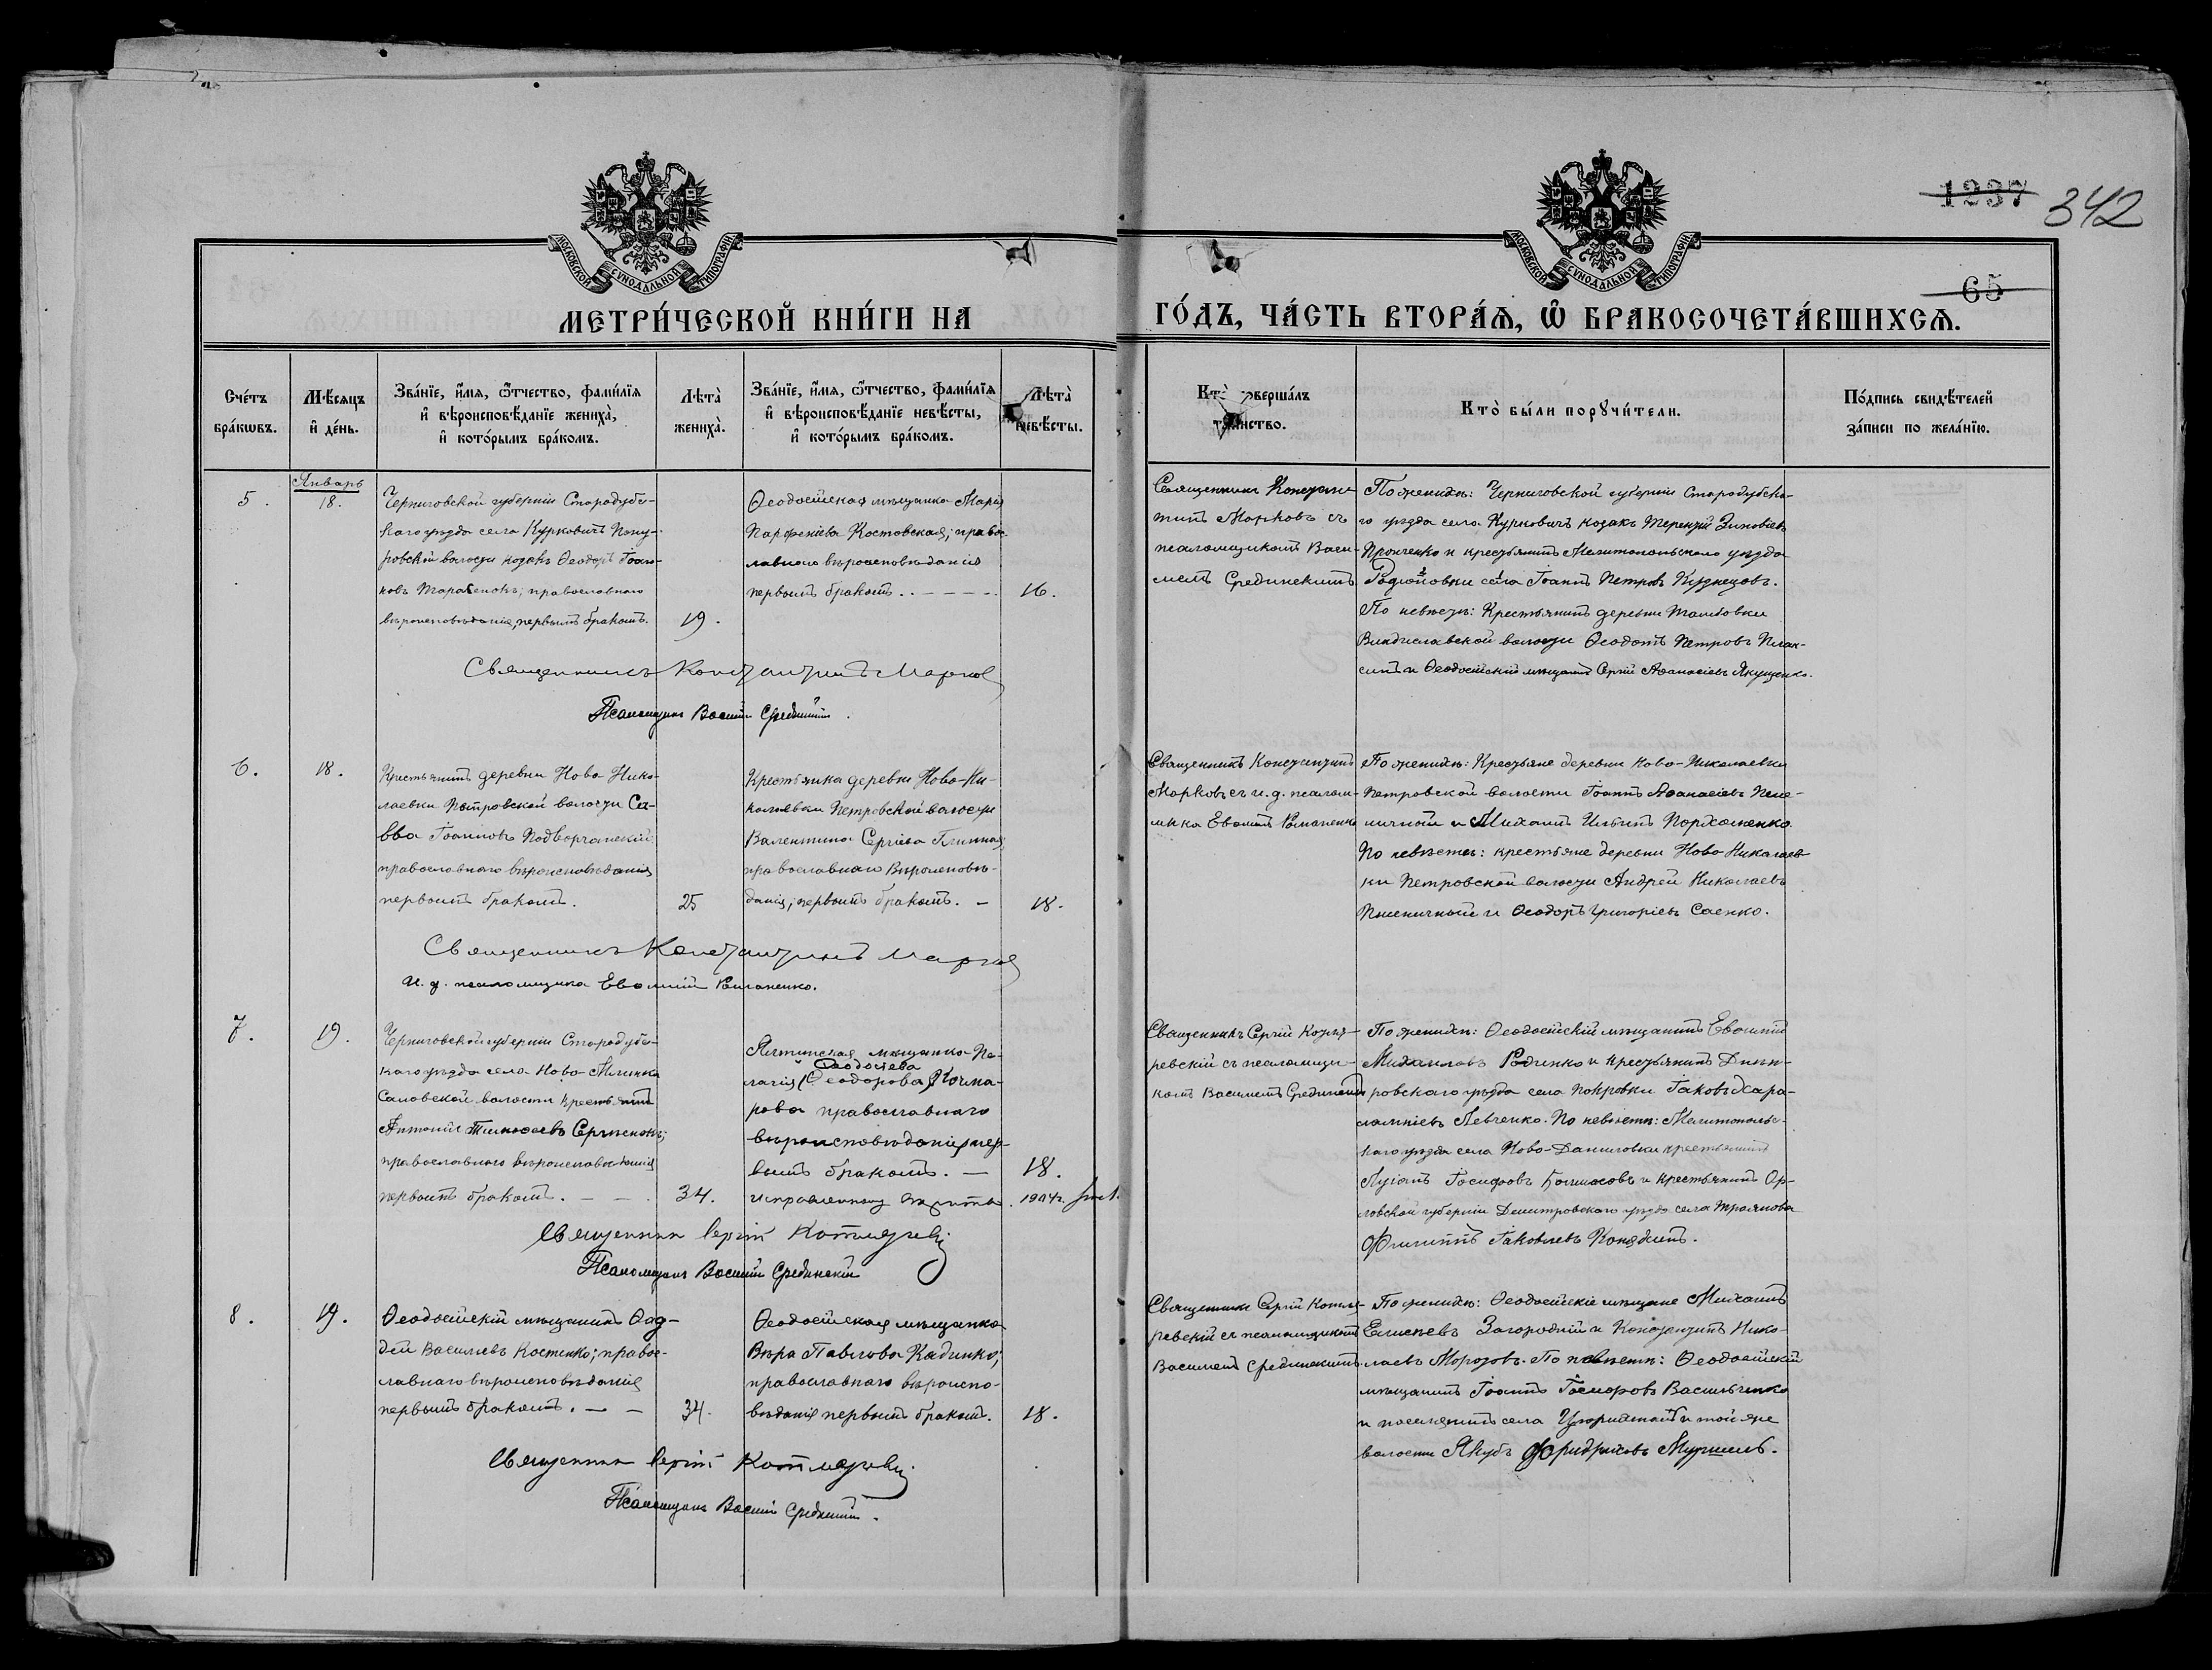 1237
342
65
МОСКОВСКОЙ СѴНОДАЛЬНОЙ ТИПОГРАФІИ
МОСКОВСКОЙ СѴНОДАЛЬНОЙ ТИПОГРАФІИ
МЕТРИ́ЧЕСКОЙ КНИ́ГИ НА
ГО́ДЪ, ЧА́СТЬ ВТОРА́Я, Ѿ БРАКОСОЧЕТА́ВШИХСЯ.
Сче́тъ бра́кѡвъ.
Мѣ́сяцъ и҆ де́нь.
Зва́нїе, и҆́мя, ѻ҆́тчество, фами́лїя
и҆ вѣроисповѣ́данїе жениха̀,
и҆ кото́рымъ бра́комъ.
Лѣта̀ жениха̀.
Зва́нїе, и҆́мя, ѻ҆́тчество, фами́лїя
и҆ вѣроисповѣ́данїе невѣ́сты,
и҆ кото́рымъ бра́комъ.
Лѣта̀ невѣ́сты.
Кто̀ совершалъ таинство.
Кто̀ бы́ли порꙋчи́тели.
По́дпись свидѣ́телей
за́писи по жела́нїю.
Январь
5.
18.
Черниговской губерніи Стародубс-
каго уѣзда села Курковичъ Пону-
ровской волости козакъ Ѳеодоръ Іоан-
новъ Тарабенокъ; православнаго
вѣроисповѣданія, первымъ бракомъ.
19.
Ѳеодосійская мѣщанка Марія
Парѳеніева Костовская; право-
лавнаго вѣроисповѣданія
первымъ бракомъ.
16.
Священникъ Констан-
тинъ Марковъ съ
псаломщикомъ Васи-
ліемъ Срединскимъ
По женихѣ: Черниговской губерніи Стародубска-
го уѣзда села Курковичъ козакъ Терентій Зиновіевъ
Пронченко и крестьянинъ Мелитопольскаго уѣзда
Родіоновки села Іоаннъ Петровъ Кузнецовъ.
По невѣстѣ: Крестьянинъ деревни Тамбовки
Владиславской волости Ѳеодотъ Петровъ Плак-
синъ и Ѳеодосійскій мѣщанинъ Сергій Аѳанасіевъ Якущенко.
Священникъ Константинъ Марковъ
Псаломщикъ Василій Срединскій.
6.
18.
Крестьянинъ деревни Ново Нико-
лаевки Петровской волости Са-
вва Іоанновъ Подворчанскій
православнаго вѣроисповѣданія
первымъ бракомъ.
25
Крестьянка деревни Ново-Ни-
колаевки Петровской волости
Валентина Сергіева Глинная,
православнаго вѣроисповѣ-
данія; первымъ бракомъ.
18.
Священникъ Константинъ
Марковъ съ и. д. псалом-
щика Евѳиміемъ Романенко
По женихѣ: Крестьяне деревни Ново-Николаевки
Петровской волости Іоаннъ Аѳанасіевъ Пше-
ничный и Михаилъ Ильинъ Порхоменко.
По невѣстѣ: крестьяне деревни Ново Николаев-
ки Петровской волости Андрей Николаевъ
Пшеничный и Ѳеодоръ Григоріевъ Саенко.
Священникъ Константинъ Марковъ
И. д. псаломщика Евѳимій Романенко.
7.
19.
Черниговской губерніи Стародубс-
каго уѣзда села Ново-Млинка
волости крестьянинъ
Антоній
православнаго вѣроисповѣданія
первымъ бракомъ.
34.
Ялтинская мѣщанка Пе-
Ѳеодосіева
лагія (Ѳеодорова)
рова православнаго
вѣроисповѣданія, пер-
вымъ бракомъ.
18.
1914г.
Священникъ Сергій Котля-
ревскій съ псаломщи-
комъ Василіемъ Срединскимъ
По женихѣ: Ѳеодосійскій мѣщанинъ Евѳимій
Михаиловъ Родченко и крестьянинъ Днѣп-
ровскаго уѣзда села Покровки Іаковъ Хара-
лампіевъ Левченко. По невѣстѣ: Мелитопольс-
каго уѣзда села Ново-Даниловки крестьянинъ
Лукіанъ Іосифовъ и крестьянинъ Ор-
ловской губерніи Дмитровскаго уѣзда села Трояново
Филиппъ Іаковлевъ
Священникъ Сергій Котляревскій
Псаломщикъ Василій Срединскій
8.
19.
Ѳеодосійскій мѣщанинъ Ѳад-
дей Васильевъ Костенко; правос-
лавнаго вѣроисповѣданія
первымъ бракомъ.
34.
Ѳеодосійская мѣщанка
Вѣра Павлова Кадинко;
православнаго вѣроиспо-
вѣданія первымъ бракомъ.
18.
Священникъ Сергій Котля-
ревскій съ псаломщикомъ
Василіемъ Срединскимъ
По женихѣ: Ѳеодосійскіе мѣщане Михаилъ
Елисѣевъ Загородній и Константинъ Нико-
лаевъ Морозовъ. По невѣстѣ: Ѳеодосійскій
мѣщанинъ Іоаннъ Васильченко
и поселянинъ села Цюрихталь и той же
волости Якубъ Фридриховъ
Священникъ Сергій Котляревскій
Псаломщикъ Василій Срединскій.